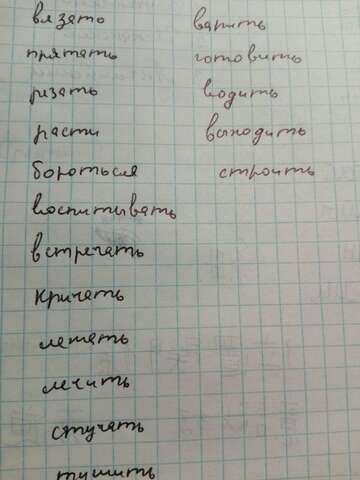 вязать
прятать
резать
расти
бороться
воспитывать
встречать
кричать
летать
лечить
стучать
тушить
варить
готовить
водить
выходить
строить